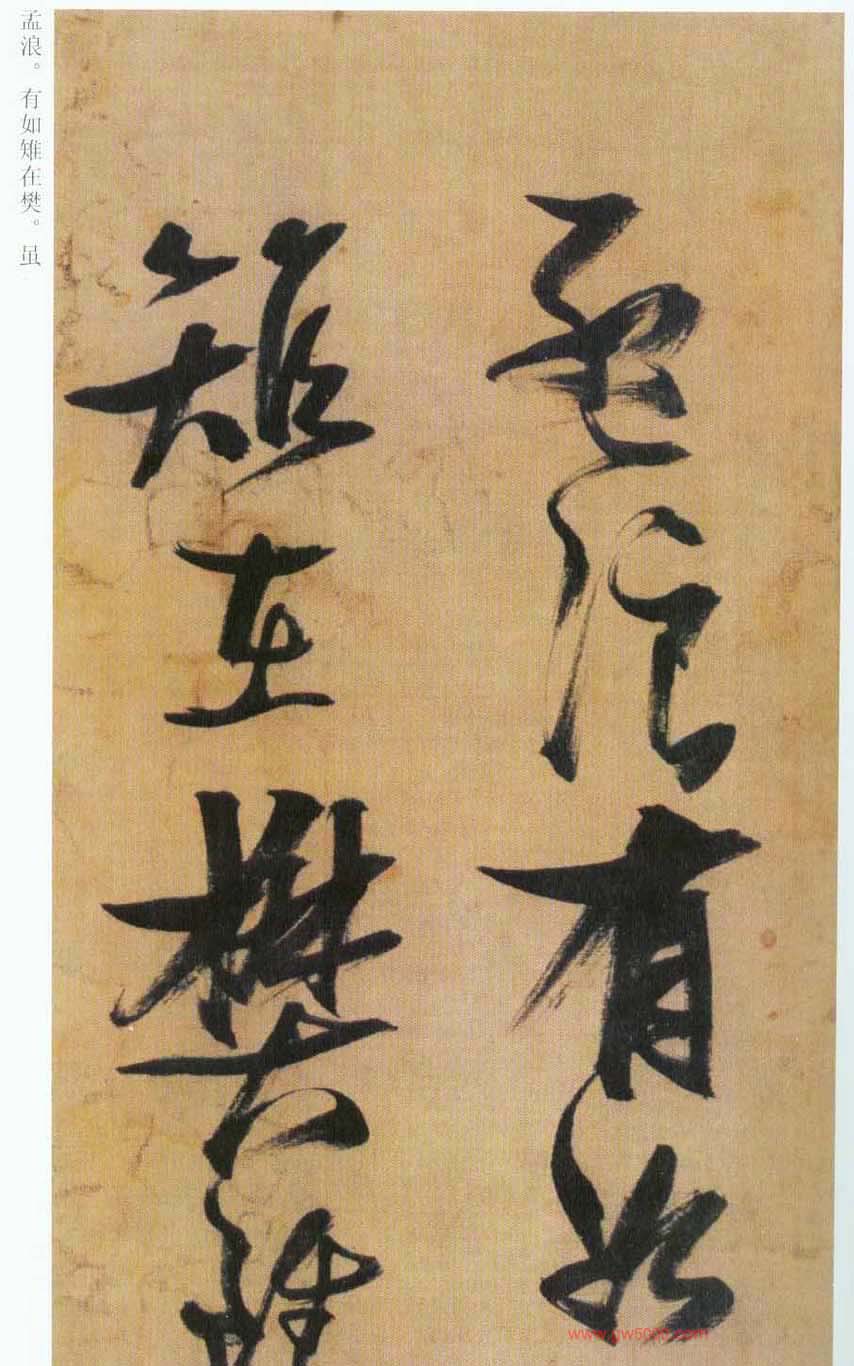 孟浪有如
雉在樊雖
孟浪。有如雉在樊。虽
www.gw5000.com